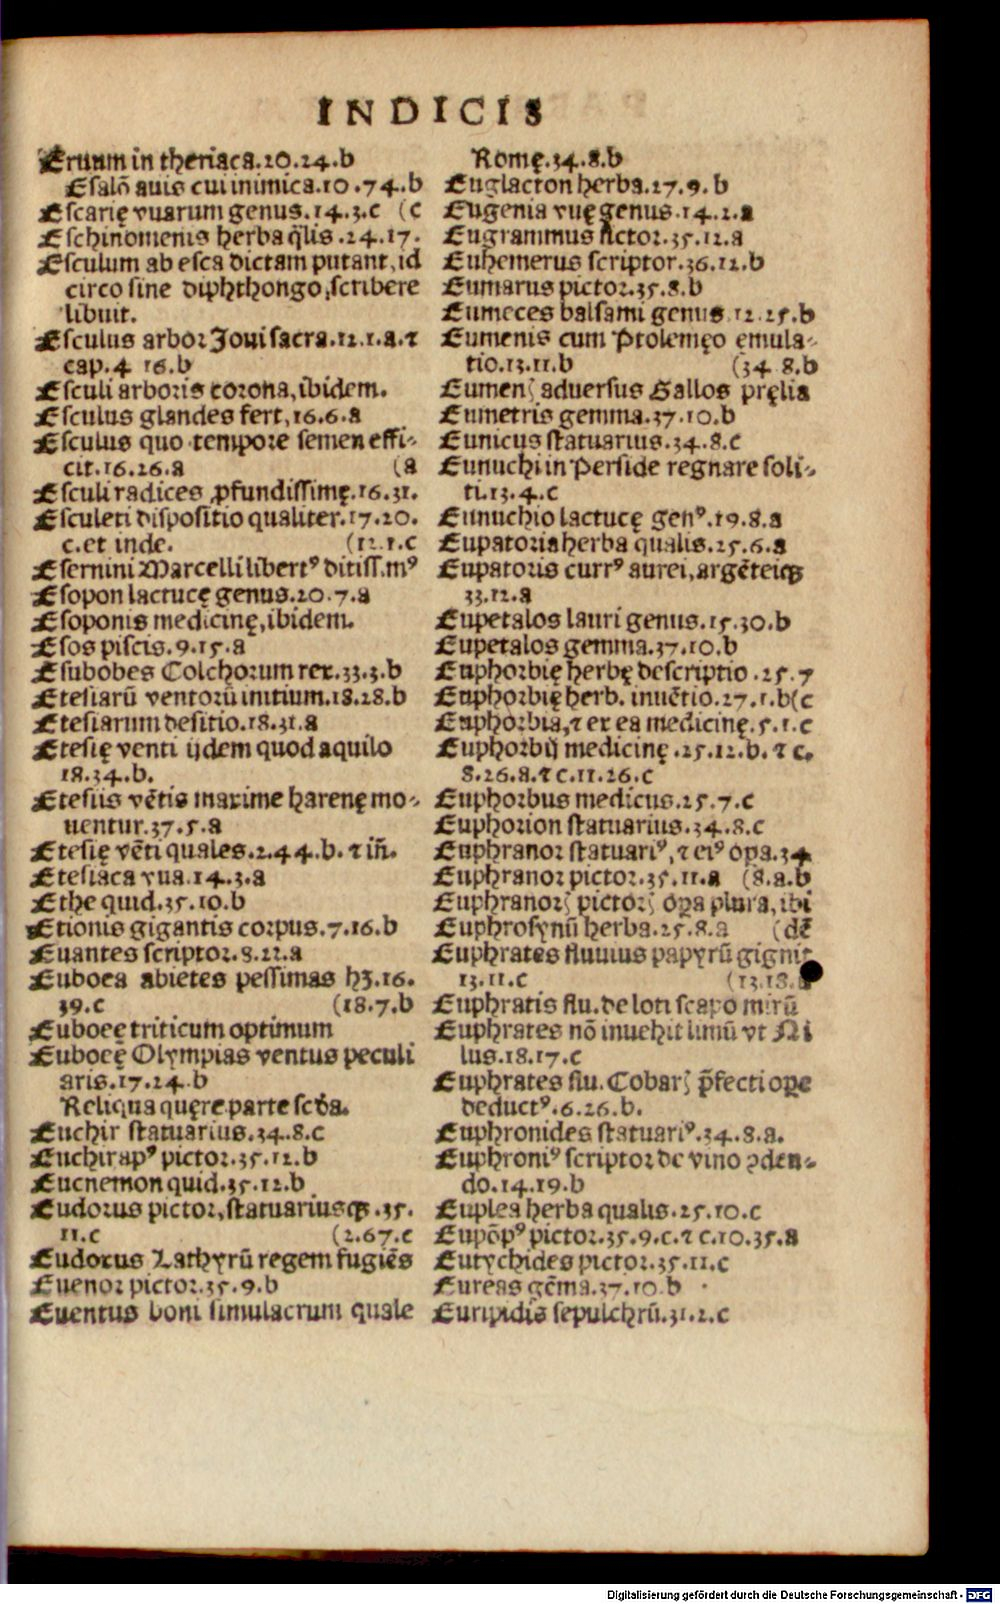 INDICIS
Eruum in theriaca.20.24.b
Esalō auis cui inimica.10.74.b
Escarię vuarum genus.14.3.c (c
Eschinomenis herba q̃lis.24.17.
Esculum ab esca dictam putant, id
circo sine diphthongo, scribere
libuit.
Esculus arbor Joui sacra.12.1.a.⁊
cap.4 16.b
Esculi arboris corona, ibidem.
Esculus glandes fert, 16.6.a
Esculus quo tempore semen effi-
cit.16.26.a (a
Esculi radices ꝓfundissimę.16.31.
Esculeti dispositio qualiter.17.20.
c.et inde. (12.1.c
Esernini Marcelli libertꝰ ditiss.mꝰ
Esopon lactucę genus.20.7.a
Esoponis medicinę, ibidem.
Esos piscis.9.15.a
Esubobes Colchorum rex.33.3.b
Etesiarū ventorū initium.18.28.b
Etesiarum desitio.18.31.a
Etesię venti ijdem quod aquilo
18.34.b.
Etesiis vētis maxime harenę mo-
uentur.37.5.a
Etesię vēti quales.2.44.b.⁊ iñ.
Etesiaca vua.14.3.a
Ethe quid.35.10.b
Etionis gigantis corpus.7.16.b
Euantes scriptor.8.22.a
Euboea abietes pessimas hꝫ.16.
39.c (18.7.b
Euboeę triticum optimum
Euboeę Olympias ventus peculi
aris.17.24.b
Reliqua quęre parte scḋa.
Euchir statuarius.34.8.c
Euchirapꝰ pictor.35.12.b
Eucnemon quid.35.12.b
Eudorus pictor, statuariusqꝫ.35.
11.c (2.67.c
Eudoxus Lathyrū regem fugiēs
Euenor pictor.35.9.b
Euentus boni simulacrum quale
Romę.34.8.b
Euglacton herba.27.9.b
Eugenia vuę genus.14.2.a
Eugrammus fictor.35.12.a
Euhemerus scriptor.36.12.b
Eumarus pictor.35.8.b
Eumeces balsami genus.12.25.b
Eumenis cum Ptolemęo ęmula-
tio.13.11.b (34 8.b
Eumenꝭ aduersus Gallos pręlia
Eumetris gemma.37.10.b
Eunicus statuarius.34.8.c
Eunuchi in Perside regnare soli-
ti.13.4.c
Eunuchio lactucę genꝰ.19.8.a
Eupatoria herba qualis.25.6.a
Eupatoris currꝰ aurei, argēteiqꝫ
33.12.a
Eupetalos lauri genus.15.30.b
Eupetalos gemma.37.10.b
Euphorbię herbę descriptio.25.7
Euphorbię herb. inuētio.27.1.b(c
Euphorbia, ⁊ ex ea medicinę.5.1.c
Euphorbij medicinę.25.12.b.⁊ c.
8.26.8.⁊ c.11.26.c
Euphorbus medicus.25.7.c
Euphorion statuarius.34.8.c
Euphranor statuariꝰ, ⁊ eiꝰ oꝑa.34
Euphranor pictor.35.11.a (8.a.b
Euphranorꝭ pictorꝭ oꝑa plura, ibi
Euphrosynū herba.25.8.a (dē
Euphrates fluuius papyrū gignit
13.11.c (13.18.b
Euphratis flu. de loti scapo mirū
Euphrates nō inuehit limū vt Ni
lus.18.17.c
Euphrates flu. Cobarꝭ p̄fecti oꝑe
deductꝰ.6.26.b.
Euphronides statuariꝰ.34.8.a.
Euphroniꝰ scriptor de vino ↄden-
do.14.19.b
Euplea herba qualis.25.10.c
Eupōpꝰ pictor.35.9.c.⁊ c.10.35.a
Eutychides pictor.35.11.c
Eureas gēma.37.10.b
Euripidis sepulchrū.31.2.c
Digitalisierung gefördert durch die Deutsche Forschungsgemeinschaft - DFG